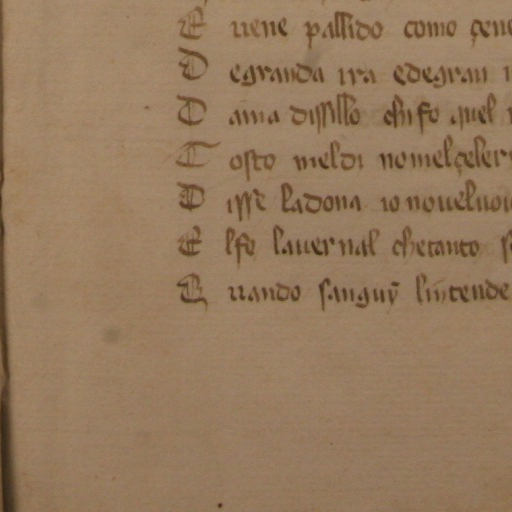 E viene pallido como çene
D egranda ira edegran
D ama dissillo chifo quel
T osto meldi nomelçeler
D isse ladona io noueluoi
E lfo lauernal chetanto s
B rando sanguỹ lintende